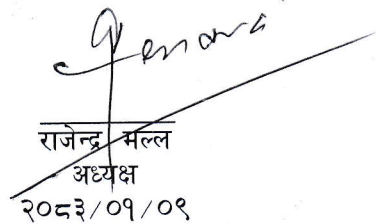 राजेन्द्र मल्ल
अध्यक्ष
२०८३/०१/०९